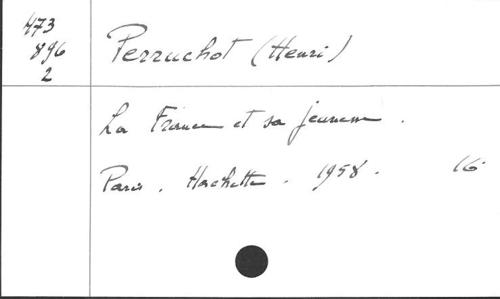 473
896
2
Perruchot (Henri)
La France et sa jeunesse.
Paris. Hachette. 1958. 16°